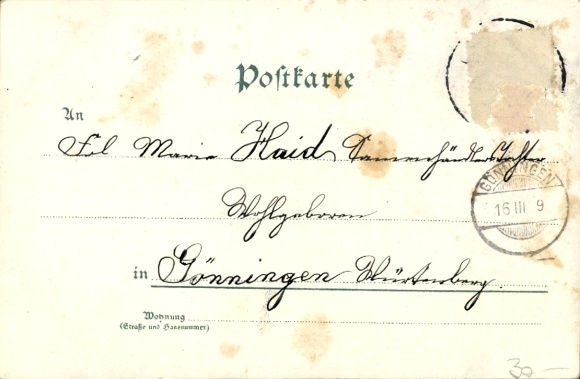 Postkarte
An
Frl Marie Haid Samenhändlers Tochter
Wohlgeboren
GÖNNINGEN
16 III 9
in Gönningen Würtenberg.
Wohnung
(Straße und Hausnummer)
30 —